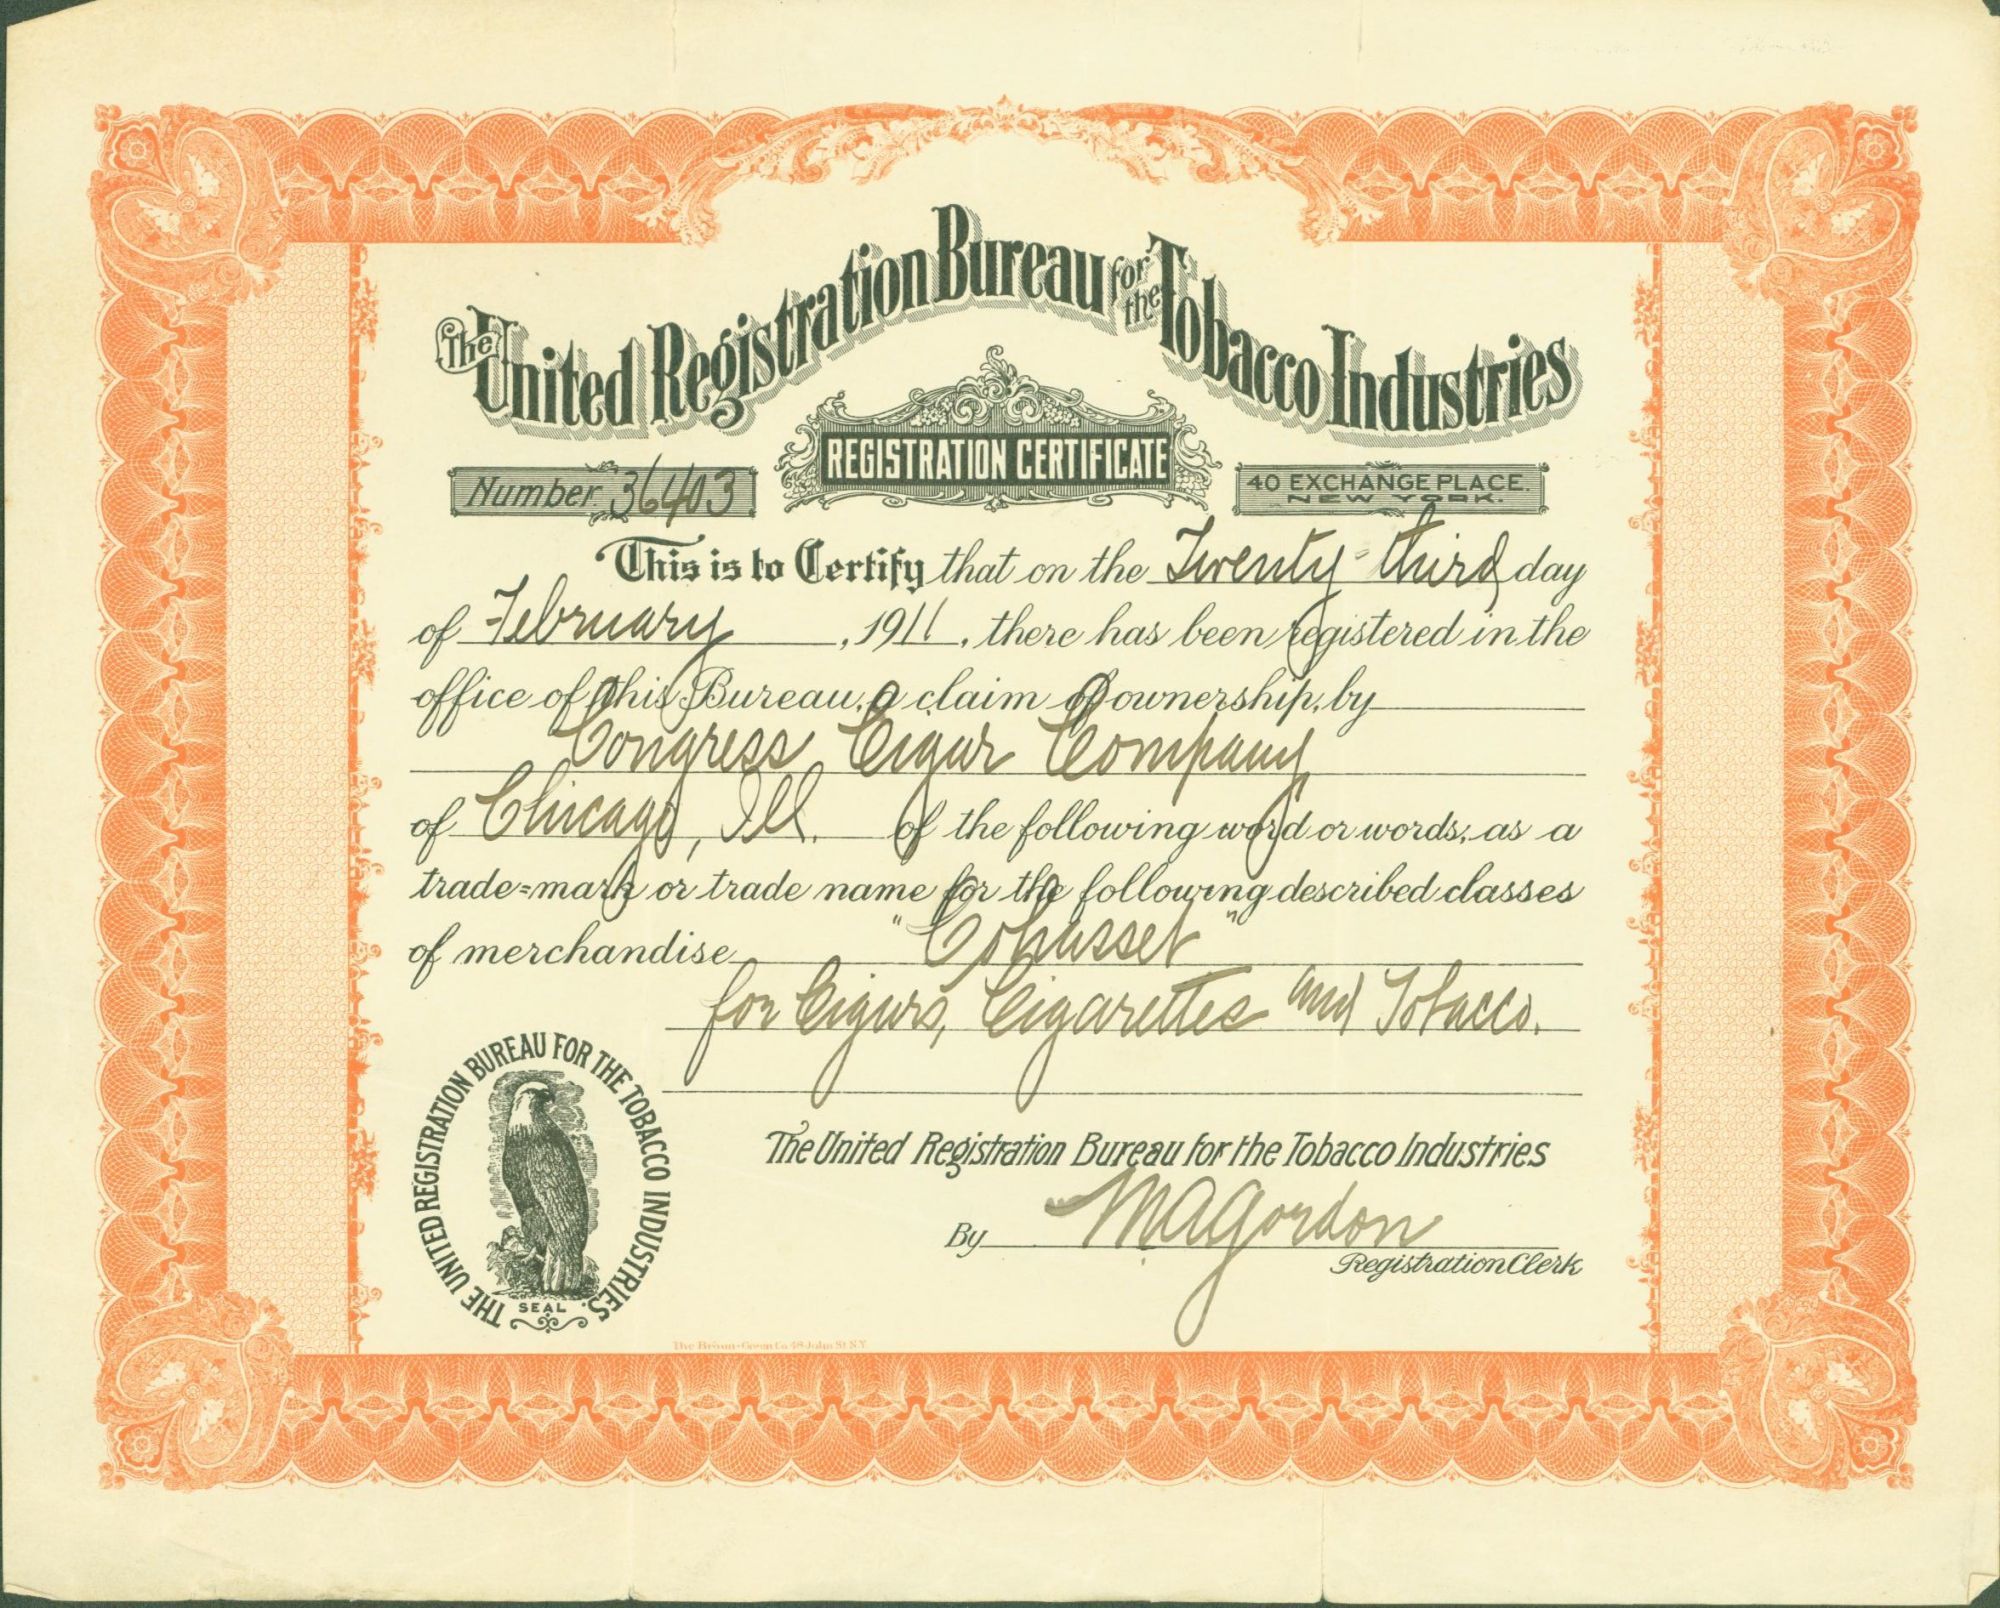 The United Registration Bureau for the Tobacco Industries
REGISTRATION CERTIFICATE
Number 36403
40 EXCHANGE PLACE.
NEW YORK.
This is to Certify that on the Twenty-third day
of February, 1911, there has been registered in the
office of this Bureau, a claim of ownership, by
Congress Cigar Company
of Chicago, Ill. of the following word or words, as a
trade-mark or trade name for the following described classes
of merchandise "Cohasset"
for Cigars, Cigarettes and Tobacco.
THE UNITED REGISTRATION BUREAU FOR THE TOBACCO INDUSTRIES.
SEAL
The United Registration Bureau for the Tobacco Industries
By M A Gordon
Registration Clerk
The Brown-Green Co. 48 John St. N.Y.